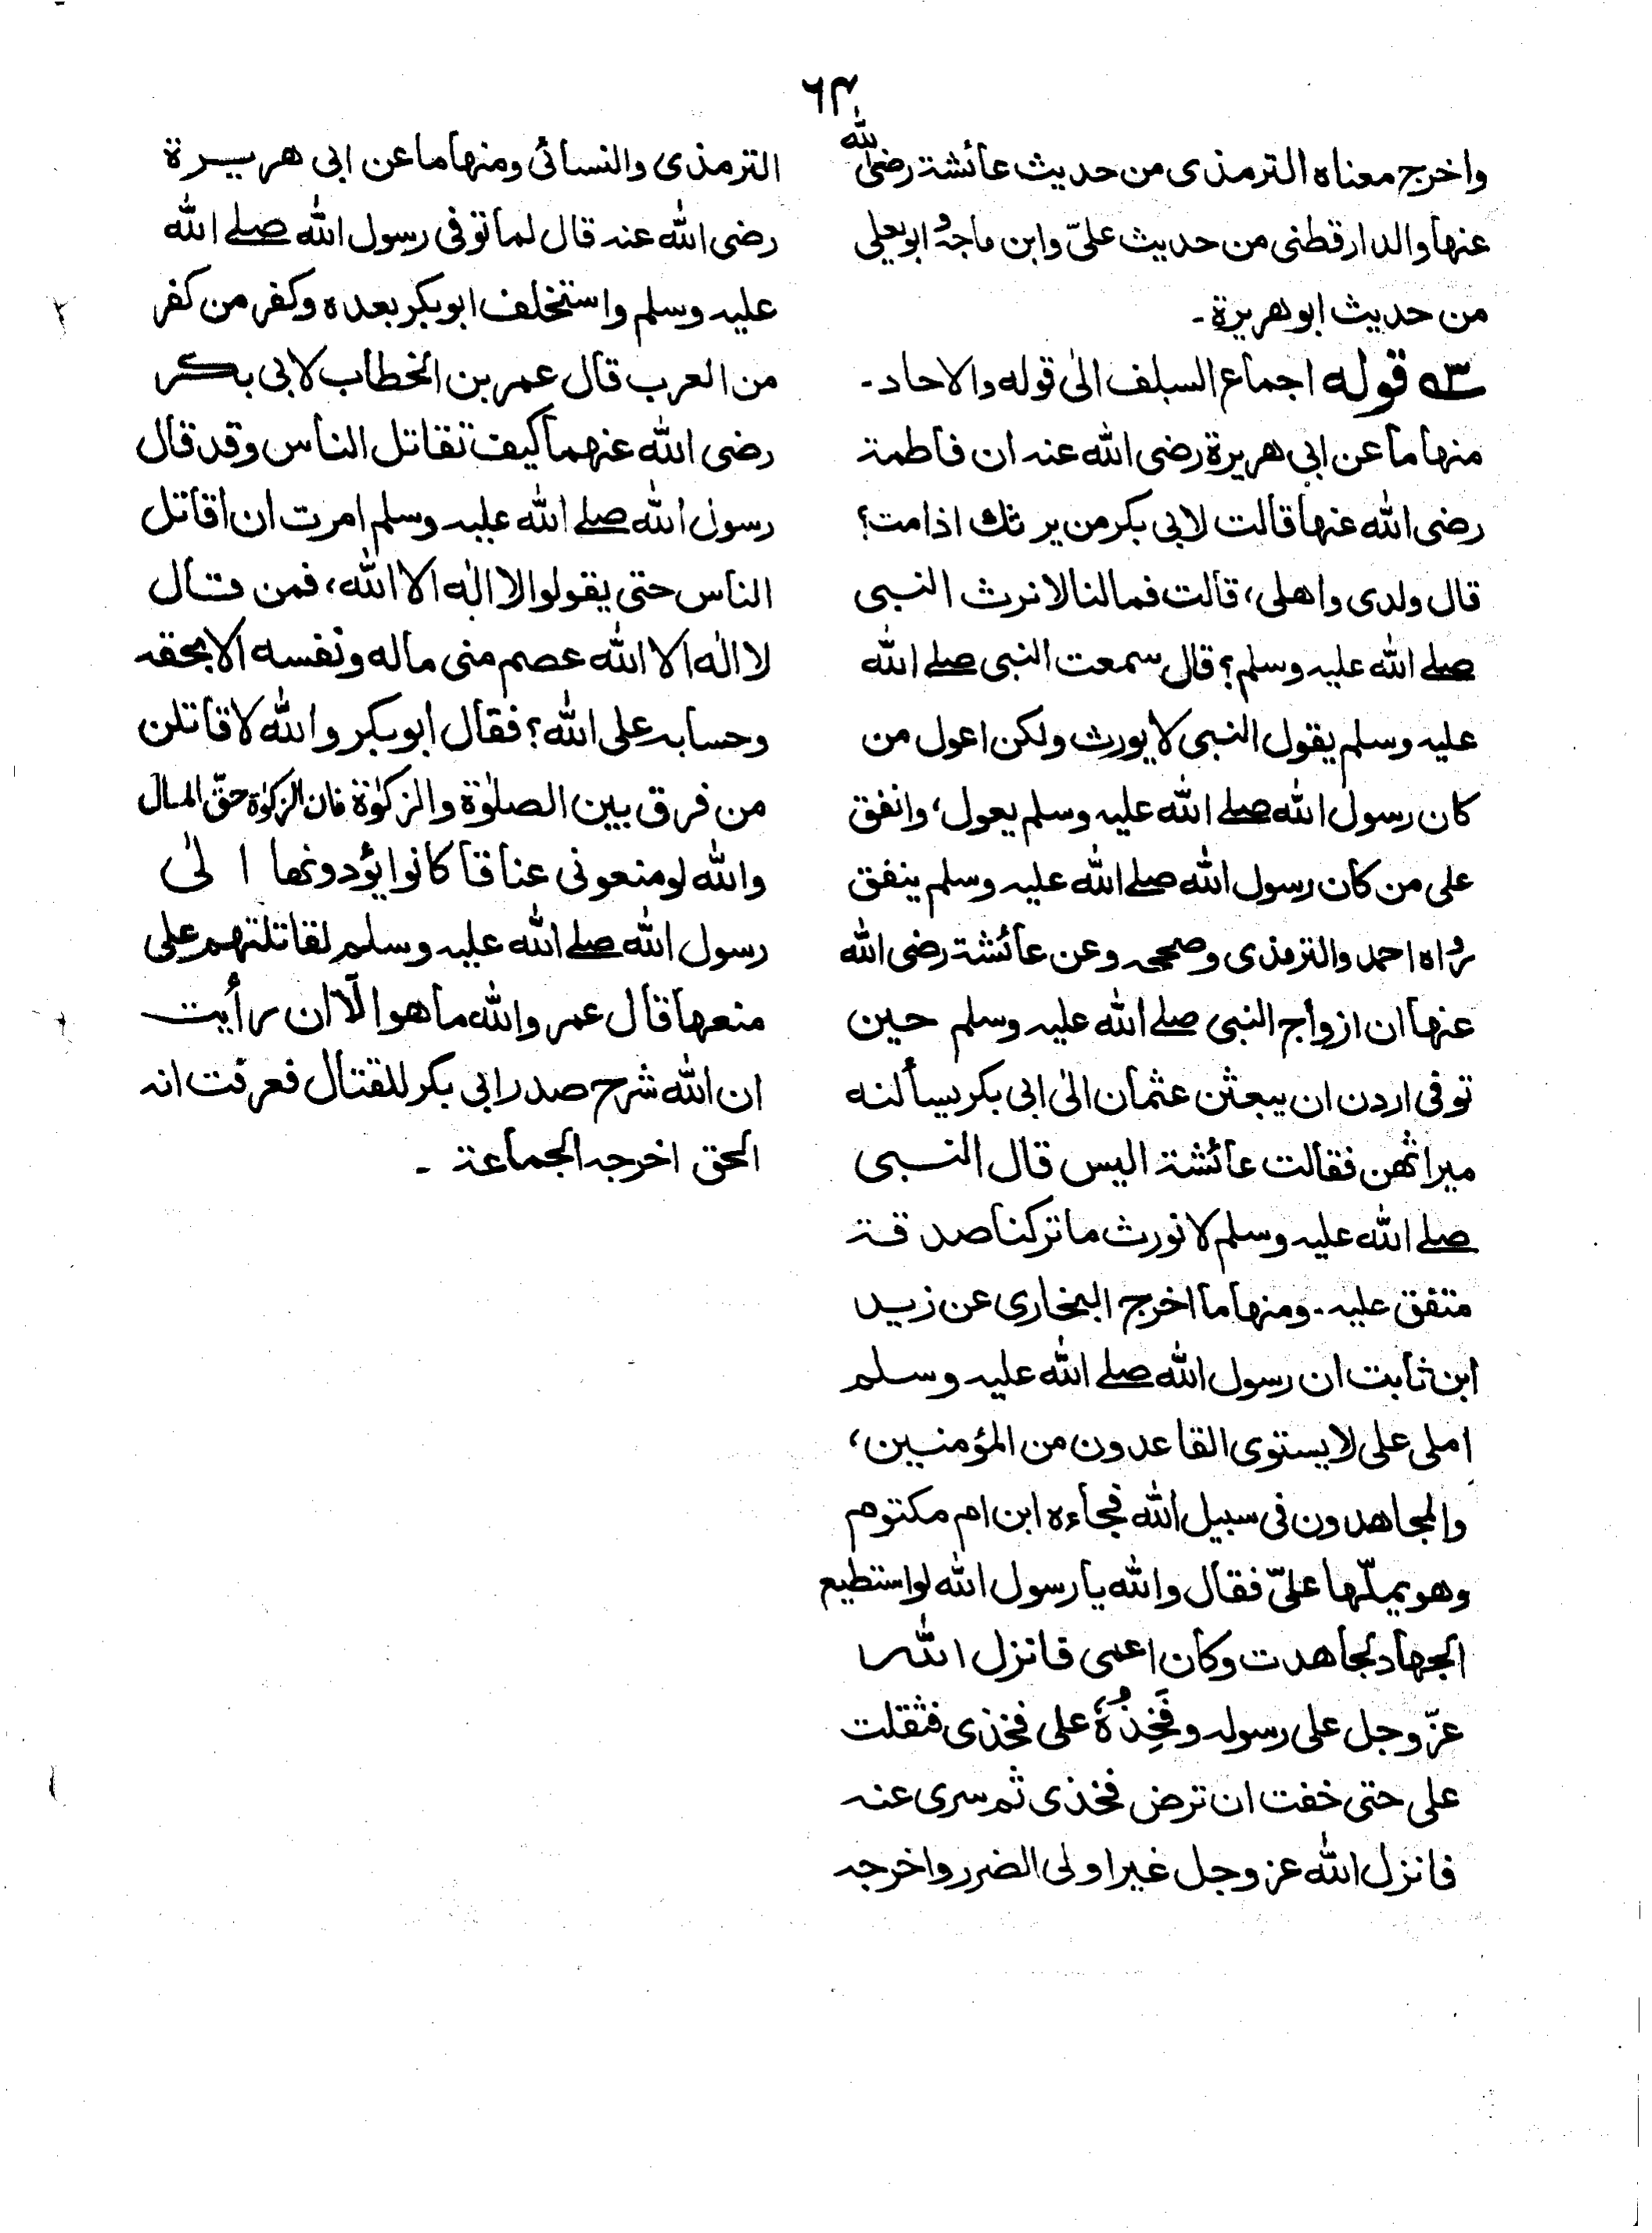 ۶۳
واخرج معناه الترمذی من حدیث عائشة رضی الله
عنها والدارقطنی من حدیث علیّ وابن ماجہ وابو یعلی
من حدیث ابوهریرة۔
۵۳ قوله اجماع السلف الیٰ قوله والاحاد۔
منها ما عن ابی هریرة رضی الله عنه ان فاطمة
رضی الله عنها قالت لابی بکر من یرثك اذا مت؟
قال ولدی واهلی، قالت فمالنا لانرث النبی
صلے الله علیه وسلم؟ قال سمعت النبی صلے الله
علیه وسلم یقول النبی لا یورث ولکن اعول من
کان رسول الله صلے الله علیه وسلم یعول، وانفق
علی من کان رسول الله صلے الله علیه وسلم ینفق
رواه احمد والترمذی وصححه وعن عائشة رضی الله
عنها ان ازواج النبی صلے الله علیه وسلم حین
توفی اردن ان یبعثن عثمان الیٰ ابی بکر یسألنه
میراثهن فقالت عائشة الیس قال النبی
صلے الله علیه وسلم لا نورث ما ترکنا صدقة
متفق علیه۔ ومنها ما اخرج البخاری عن زید
ابن ثابت ان رسول الله صلے الله علیه وسلم
املی علی لا یستوی القاعدون من المؤمنین،
والمجاهدون فی سبیل الله فجاءه ابن ام مکتوم
وهو یملّها علیّ فقال والله یا رسول الله لو استطیع
الجهاد لجاهدت وکان اعمی فانزل الله
عزّ وجل علی رسوله وفَخِذُهٗ علی فخذی فثقلت
علی حتی خفت ان ترض فخذی ثم سری عنه
فانزل الله عز وجل غیر اولی الضرر واخرجه
الترمذی والنسائی ومنها ما عن ابی هریرة
رضی الله عنه قال لما توفی رسول الله صلے الله
علیه وسلم واستخلف ابوبکر بعده وکفر من کفر
من العرب قال عمر بن الخطاب لابی بکر
رضی الله عنهما کیف تقاتل الناس وقد قال
رسول الله صلے الله علیه وسلم امرت ان اقاتل
الناس حتی یقولوا لا الٰه الا الله، فمن قال
لا الٰه الا الله عصم منی ماله ونفسه الا بحقه
وحسابه علی الله؟ فقال ابوبکر والله لاقاتلن
من فرق بین الصلوٰة والزکوٰة فان الزکوٰة حقّ المال
والله لو منعونی عناقا کانوا یؤدونها الیٰ
رسول الله صلے الله علیه وسلم لقاتلتهم علی
منعها قال عمر والله ما هو الّا ان رأیت
ان الله شرح صدر ابی بکر للقتال فعرفت انه
الحق اخرجه الجماعة ۔